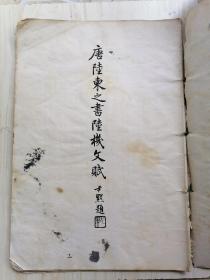 唐陸柬之書陸機文賦
尹默題